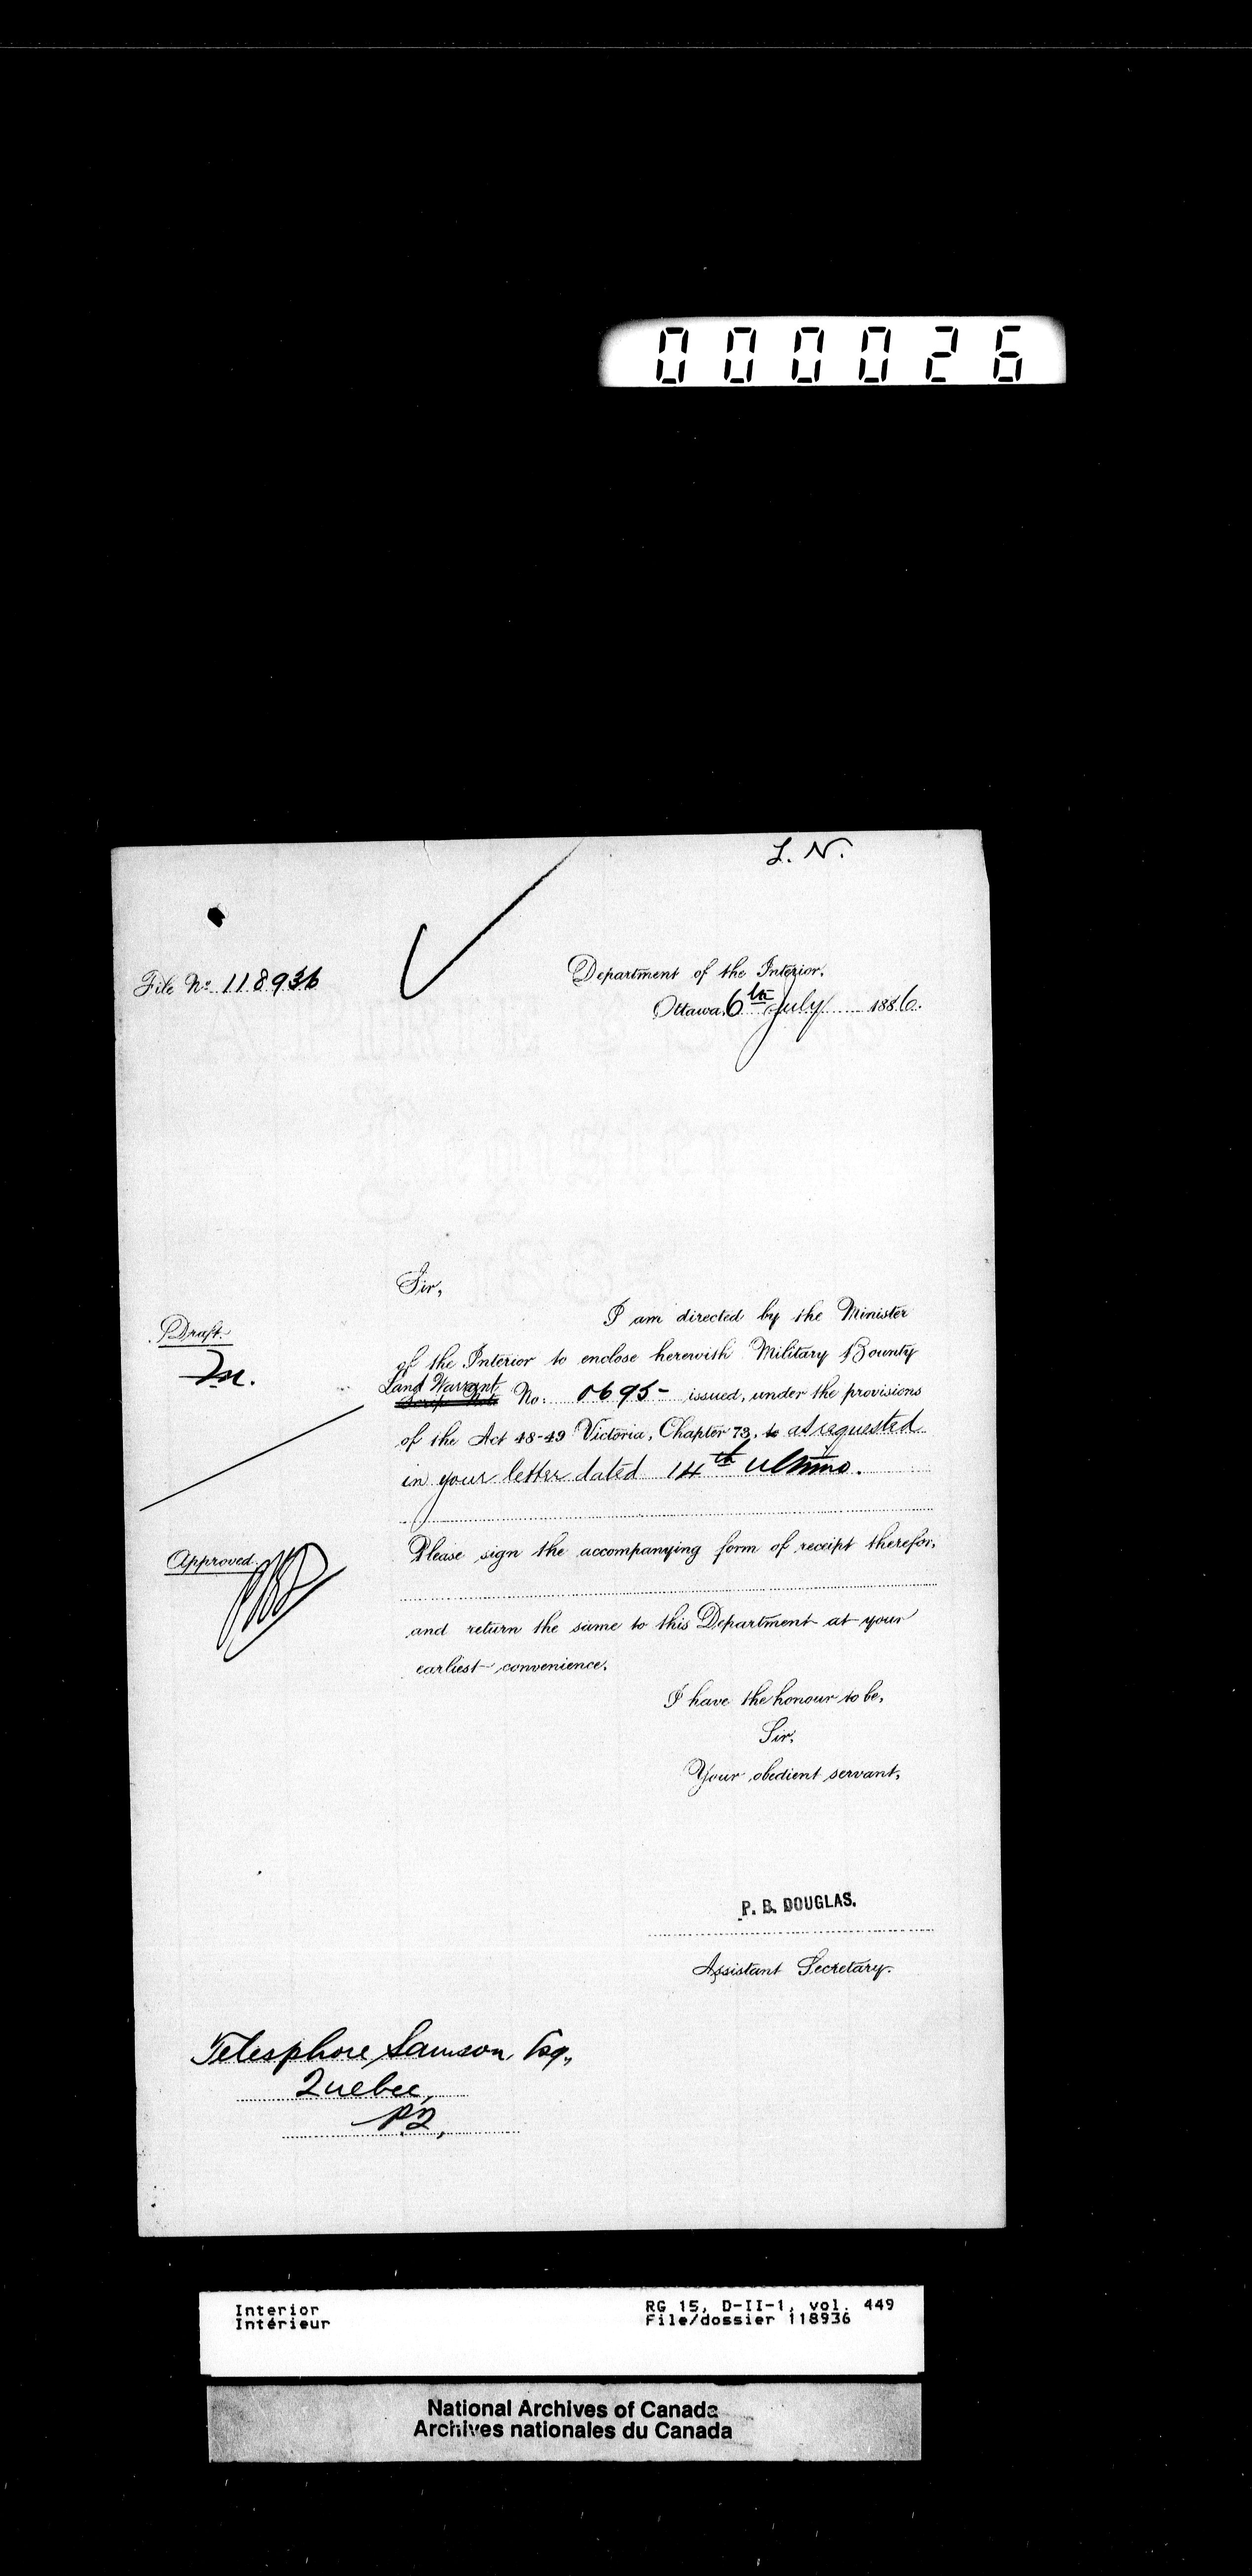 000026
L. N.
File No 118936
Department of the Interior,
Ottawa, 6th July 1886.
Sir,
I am directed by the Minister
Draft.
of the Interior to enclose herewith Military Bounty
Land Warrant
Scrip Note No: 0695- issued, under the provisions
of the Act 48-49 Victoria, Chapter 73, to as requested
in your letter dated 14th ultimo.
Approved.
Please sign the accompanying form of receipt therefor,
and return the same to this Department at your
earliest convenience.
I have the honour to be,
Sir,
Your obedient servant,
P. B. DOUGLAS.
Assistant Secretary.
Telesphore Samson, Esq.,
Quebec,
P.Q.,
Interior
Intérieur
RG 15, D-II-1, vol. 449
File/dossier 118936
National Archives of Canada
Archives nationales du Canada